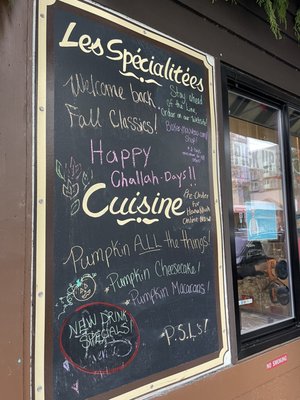 Les Spécialitées
Welcome back
Fall Classics!
Stay ahead
of the Line
Order on our website!
Shop!
Happy
Challah-Days!!
Cuisine
Pre-Order
For
Pumpkin ALL the things!
Pumpkin Cheesecake!
Pumpkin Macarons!
NEW DRINK
SPECIALS!
P.S.L's!
NO SMOKING